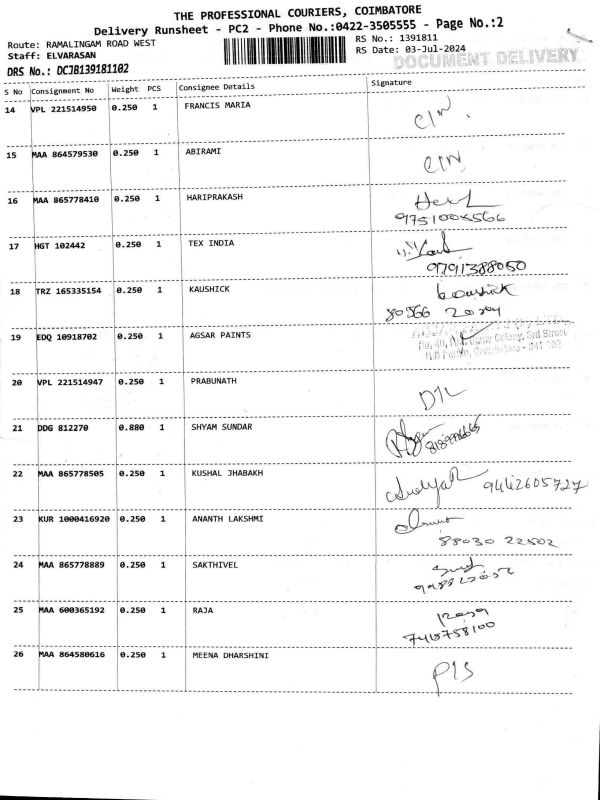 THE PROFESSIONAL COURIERS, COIMBATORE
Delivery Runsheet - PC2 - Phone No.:0422-3505555 - Page No.:2
Route: RAMALINGAM ROAD WEST
RS No.: 1391811
Staff: ELVARASAN
RS Date: 03-Jul-2024
DOCUMENT DELIVERY
DRS No.: DCJB139181102
S No Consignment No Weight PCS Consignee Details Signature
14 VPL 221514950 0.250 1 FRANCIS MARIA
15 MAA 864579530 0.250 1 ABIRAMI
16 MAA 865778410 0.250 1 HARIPRAKASH
9751005566
17 HGT 102442 0.250 1 TEX INDIA
9791388050
18 TRZ 165335154 0.250 1 KAUSHICK koushick
80566 20204
19 EDQ 10918702 0.250 1 AGSAR PAINTS
Colony, 3rd Street
20 VPL 221514947 0.250 1 PRABUNATH D/L
21 DDG 812270 0.880 1 SHYAM SUNDAR
22 MAA 865778505 0.250 1 KUSHAL JHABAKH 9442605727
23 KUR 1000416920 0.250 1 ANANTH LAKSHMI
88030 22502
24 MAA 865778889 0.250 1 SAKTHIVEL
25 MAA 600365192 0.250 1 RAJA Raja
7413758100
26 MAA 864580616 0.250 1 MEENA DHARSHINI P/S